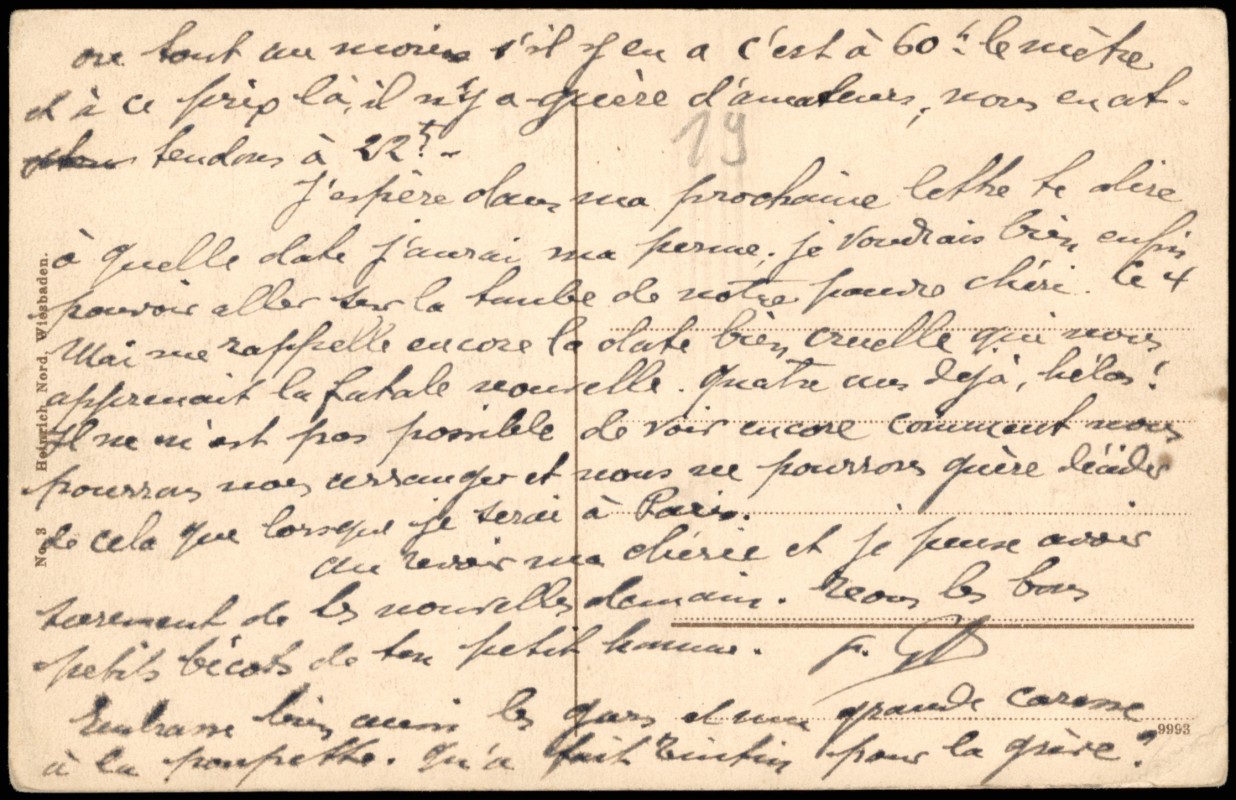 ou tout au moins s'il y en a c'est à 60 f. le mètre
et à ce prix là, il n'y a guère d'amateurs, nous en at-
tendons à 22 f. -
19
J'espère dans ma prochaine lettre te dire
à quelle date j'aurai ma perme, je voudrais bien enfin
pouvoir aller sur la tombe de notre pauvre chéri. Ce 4
Mai me rappelle encore la date bien cruelle qui nous
apprenait la fatale nouvelle. Quatre ans déjà, hélas!
Il ne m'est pas possible de voir encore comment nous
pourrons nous arranger et nous ne pourrons guère décider
de cela que lorsque je serai à Paris.
Au revoir ma chérie et je pense avoir
surement de tes nouvelles demain. Reçois les bons
petits bécots de ton petit homme.
Embrasse bien aussi les gars et une grande caresse
à la poupette. Qu'a fait Tintin pour la grève?
No. 3 Heinrich Nord, Wiesbaden.
9993